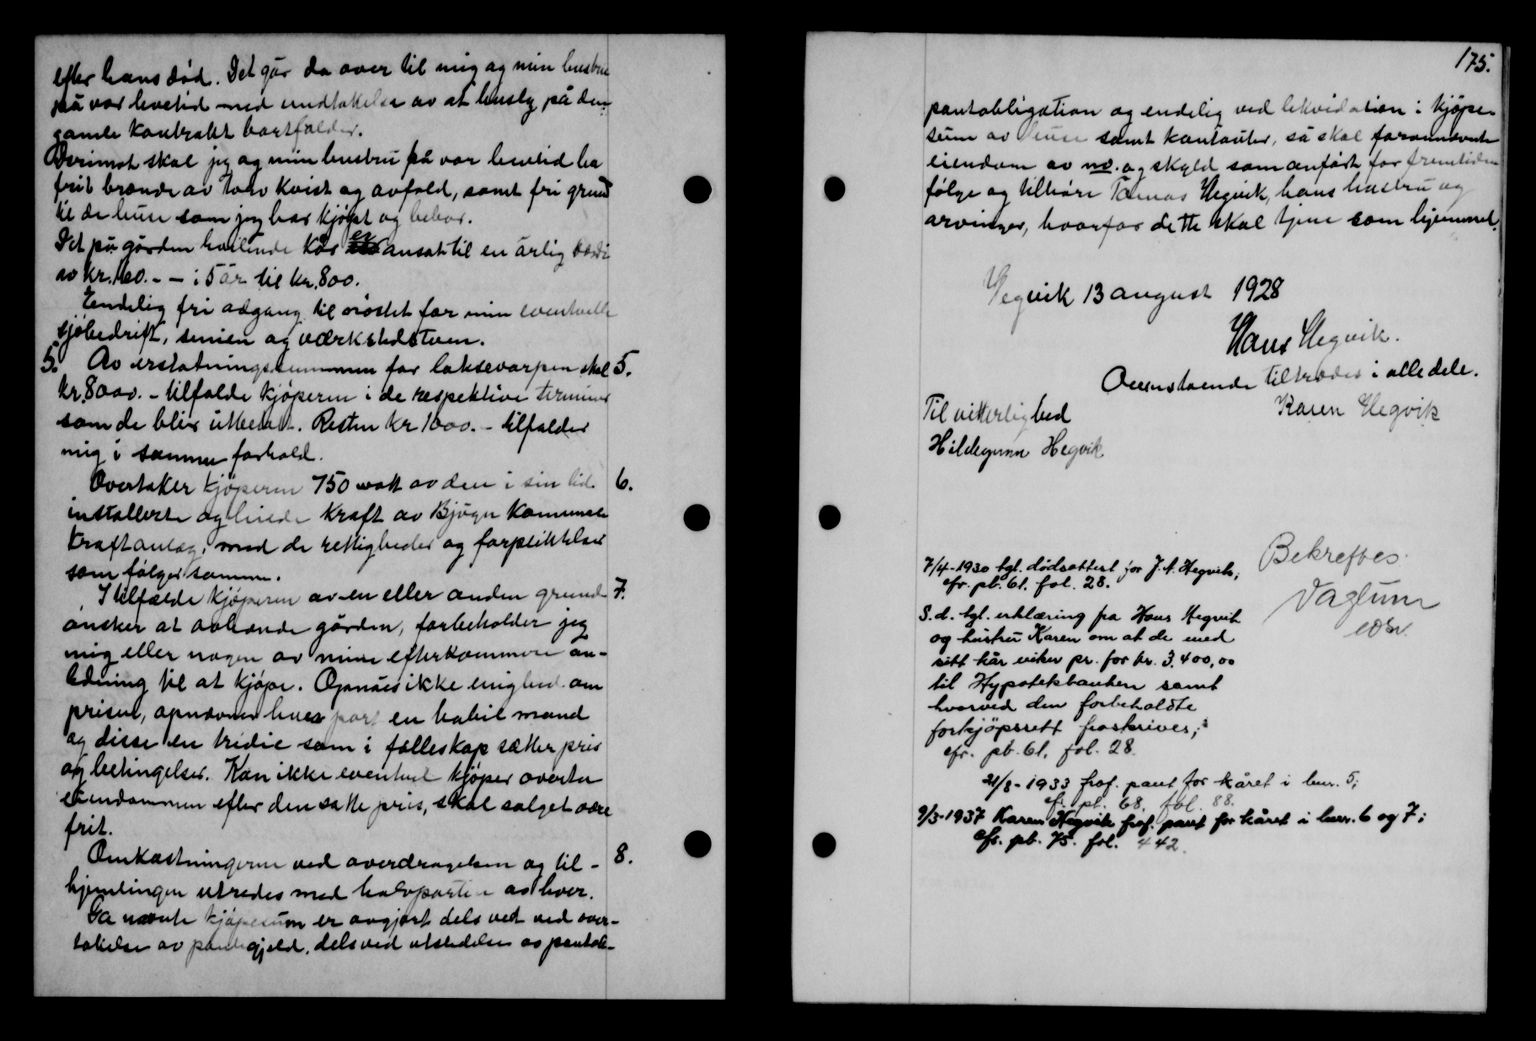 efter hans död. Det går da over til mig og min hustru
på vor levetid med undtakelse av at husly på den
gamle kontrakt bortfalder.
Derimot skal jeg og min hustru på vor levetid ha
frit brænde av tørv kvist og avfald, samt fri grund
til de huse som jeg har kjöpt og bebor.
Det på gården hvilende kår er ansat til en årlig værdi
av kr. 160.- – i 5 år til kr. 800.
Endelig fri adgang til oröstet for min eventuelle
sjöbedrift, smien og værkstedstuen.
5. Av erstatningssummen for laksevarpen skal 5.
kr. 8000.- tilfalde kjöperen i de respektive terminer
som de blir utbetalt. Resten kr 1000.- tilfalder
mig i samme forhold.
Overtaker kjöperen 750 watt av den i sin tid 6.
installerte og leiede kraft av Bjugn Kommunes
kraftanlæg, med de rettigheder og forpliktelser
som fölger samme.
I tilfælde kjöperen av en eller anden grund 7.
önsker at avhænde gården, forbeholder jeg
mig eller nogen av mine efterkommere an-
ledning til at kjöpe. Opnåes ikke enighed om
prisen, opnævner hver part en habil mand
og disse en tredie som i fælleskap sætter pris
og betingelser. Kan ikke eventuel kjöper overta
eiendommen efter den satte pris, skal salget være
frit.
Omkostningerne ved overdragelsen og til- 8.
hjemlingen utredes med halvparten av hver.
Da nævnte kjöpesum er avgjort dels ved ved over-
takelse av pantegjeld, dels ved utstedelse av pantob-
175.
pantobligation og endelig ved likvidation i kjöpe-
sum av huse samt kontanter, så skal forannævnte
eiendom av no. og skyld som anfört for fremtiden
fölge og tilhöre Tomas Hegvik, hans hustru og
arvinger, hvorfor dette skal tjene som hjemmel.
Hegvik 13 august 1928
Hans Hegvik.
Ovenstaende tiltrædes i alle dele.
Til vitterlighed Karen Hegvik
Hildegunn Hegvik
7/4-1930 tgl. dödsattest for J. A. Hegvik;
cfr. pb. 61. fol. 28.
S.d. tgl. erklæring fra Hans Hegvik
og hustru Karen om at de med
sitt kår viker pr. for kr. 3.400,00
til Hypotekbanken samt
hvorved den forbeholdte
forkjöpsrett fraskrives;
cfr. pb. 61, fol. 28.
Bekreftes
Vaglum
edsv.
21/8-1933 fraf. pant for kåret i bnr. 5;
cfr. pb. 68, fol. 88.
9/3-1937 Karen Hegvik fraf. pant for kåret i bnr. 6 og 7;
cfr. pb. 75. fol. 442.